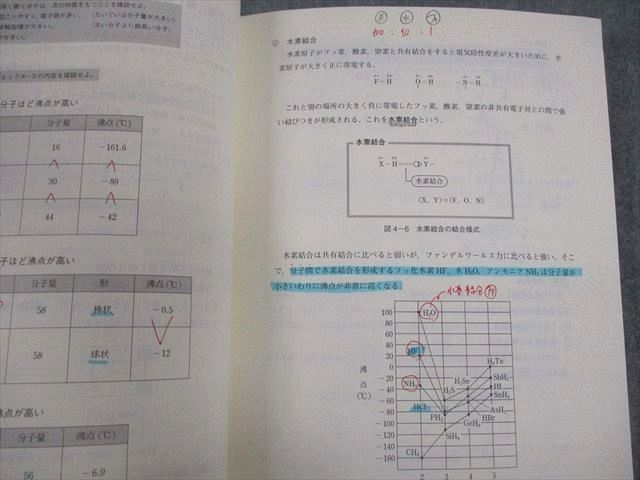 強く働く分子は、次の特徴をもつことを確認せよ。
起こりやすく、電子が多い。（たいていは分子量が大きい）
接触面積が大きい。（丸い分子より細長い分子）
の内容を確認せよ。
分子ほど沸点が高い
分子量 沸点（℃）
16 −161.6
30 −89
44 −42
子ほど沸点が高い
分子量 形 沸点（℃）
58 棒状 −0.5
58 球状 −12
沸点が高い
分子量 沸点（℃）
56 −6.9
100 : 10 : 1
② 水素結合
水素原子がフッ素、酸素、窒素と共有結合をすると電気陰性度差が大きいために、水
素原子が大きく正に帯電する。
δ− δ+ δ− δ+ δ− δ+
F−H O−H −N−H
これと別の場所の大きく負に帯電したフッ素、酸素、窒素の非共有電子対との間で強
い結びつきが形成される。これを水素結合という。
水素結合
δ− δ+ δ−
X−H Y−
水素結合
（X、Y）＝（F、O、N）
図4−6 水素結合の結合様式
水素結合は共有結合に比べると弱いが、ファンデルワールス力に比べると強い。そこ
で、分子間で水素結合を形成するフッ化水素HF、水H₂O、アンモニアNH₃は分子量が
小さいわりに沸点が非常に高くなる。
水素結合
沸点（℃）
100
80
60
40
20
0
−20
−40
−60
−80
−100
−120
−140
−160
H₂O
HF
NH₃
HCl
CH₄
H₂S
PH₃
SiH₄
H₂Se
AsH₃
HBr
GeH₄
H₂Te
SbH₃
HI
SnH₄
2 3 4 5